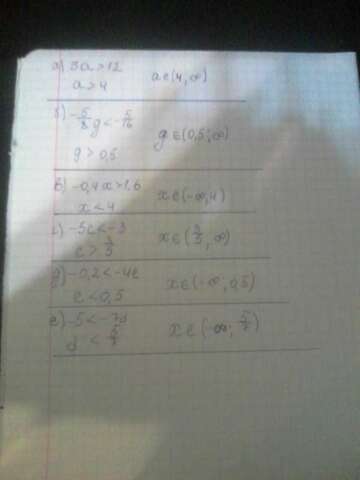 а) 3a > 12 a ∈ (4, ∞)
a > 4
б) -5/8 g < -5/16 g ∈ (0,5; ∞)
g > 0,5
в) -0,4x > 1.6 x ∈ (-∞, 4)
x < 4
г) -5c < -3 x ∈ (3/5, ∞)
c > 3/5
д) -0,2 < -4c x ∈ (-∞, 0,5)
c < 0,5
е) -5 < -7d x ∈ (-∞; 5/7)
d < 5/7